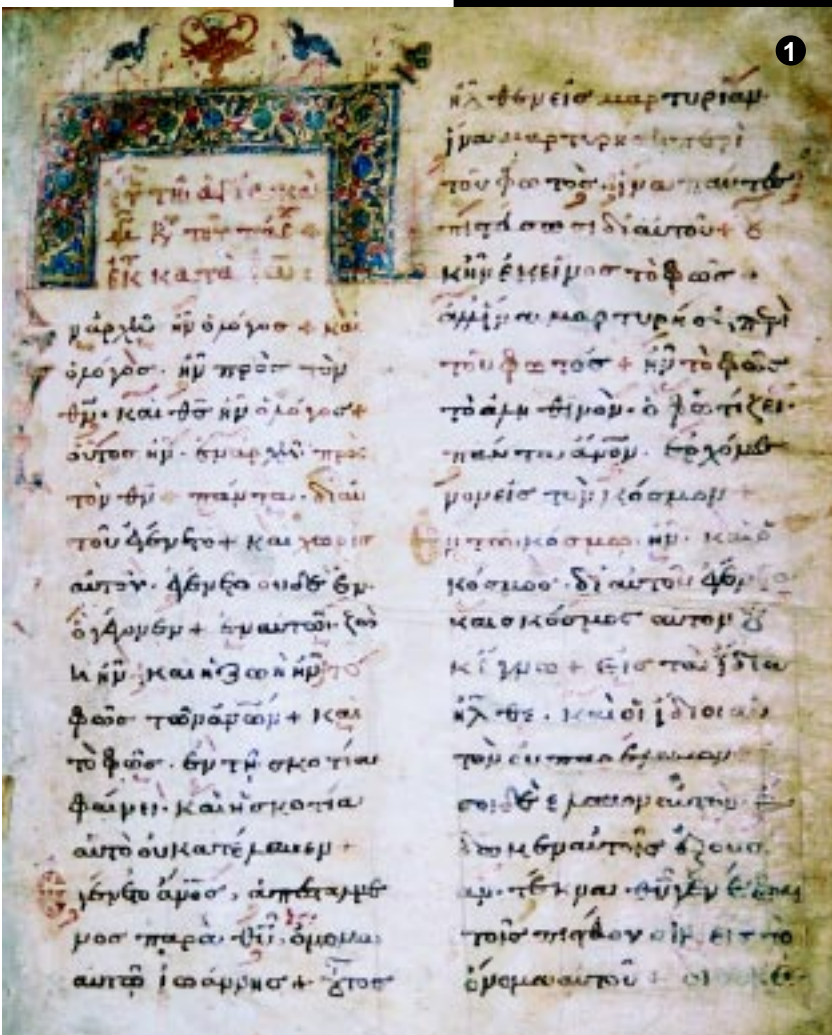 1
τῆ ἁγία κα
ἐκ κατὰ ἰω
ν ἀρχῆ ἦν ὁ λόγος + καὶ
ὁ λόγος · ἦν πρὸς τὸν
θ̅ν̅ · καὶ θ̅ς̅ ἦν ὁ λόγος +
οὗτος ἦν · ἐν ἀρχῆ πρὸς
τὸν θ̅ν̅ + πάντα · δι αὐ
τοῦ ἐγένετο + καὶ χωρὶς
αὐτοῦ · ἐγένετο οὐδὲ ἕν ·
ὃ γέγονεν + ἐν αὐτῶ · ζω
ὴ ἦν · καὶ ἡ ζωὴ ἦν τὸ
φῶς τῶν α̅ν̅ω̅ν̅ + καὶ
τὸ φῶς · ἐν τῆ σκοτία
φαίνει · καὶ ἡ σκοτία
αὐτὸ οὐ κατέλαβεν +
γένετο α̅ν̅ο̅ς̅ · ἀπεσταλμέ
νος παρὰ θ̅υ̅ · ὄνομα
αὐτῶ ἰωάννης + οὗτος
ἦλθεν εἰς μαρτυρίαν
ἵνα μαρτυρήση περὶ
τοῦ φωτὸς · ἵνα πάντες
πιστεύσωσι δι αὐτοῦ + οὐ
κ ἦν ἐκεῖνος τὸ φῶς +
ἀλλ ἵνα μαρτυρήση περὶ
τοῦ φωτός + ἦν τὸ φῶς
τὸ ἀληθινὸν · ὃ φωτίζει ·
πάντα α̅ν̅ο̅ν̅ · ἐρχόμε
νον εἰς τὸν κόσμον +
ν τῶ κόσμω · ἦν · καὶ ὁ
κόσμος · δι αὐτοῦ ἐγένετο
καὶ ὁ κόσμος αὐτὸν οὐ
κ ἔγνω + εἰς τὰ ἴδια
ἦλθε · καὶ οἱ ἴδιοι αὐ
τὸν οὐ παρέλαβον
ὅσοι δὲ ἔλαβον αὐτὸν · ἔ
δωκεν αὐτοῖς ἐξουσί
αν · τέκνα θ̅υ̅ γενέσθαι
τοῖς πιστεύουσιν εἰς τὸ
ὄνομα αὐτοῦ + οἳ οὐκ ἐ